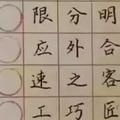 限分明
应外合
速之客
工巧匠